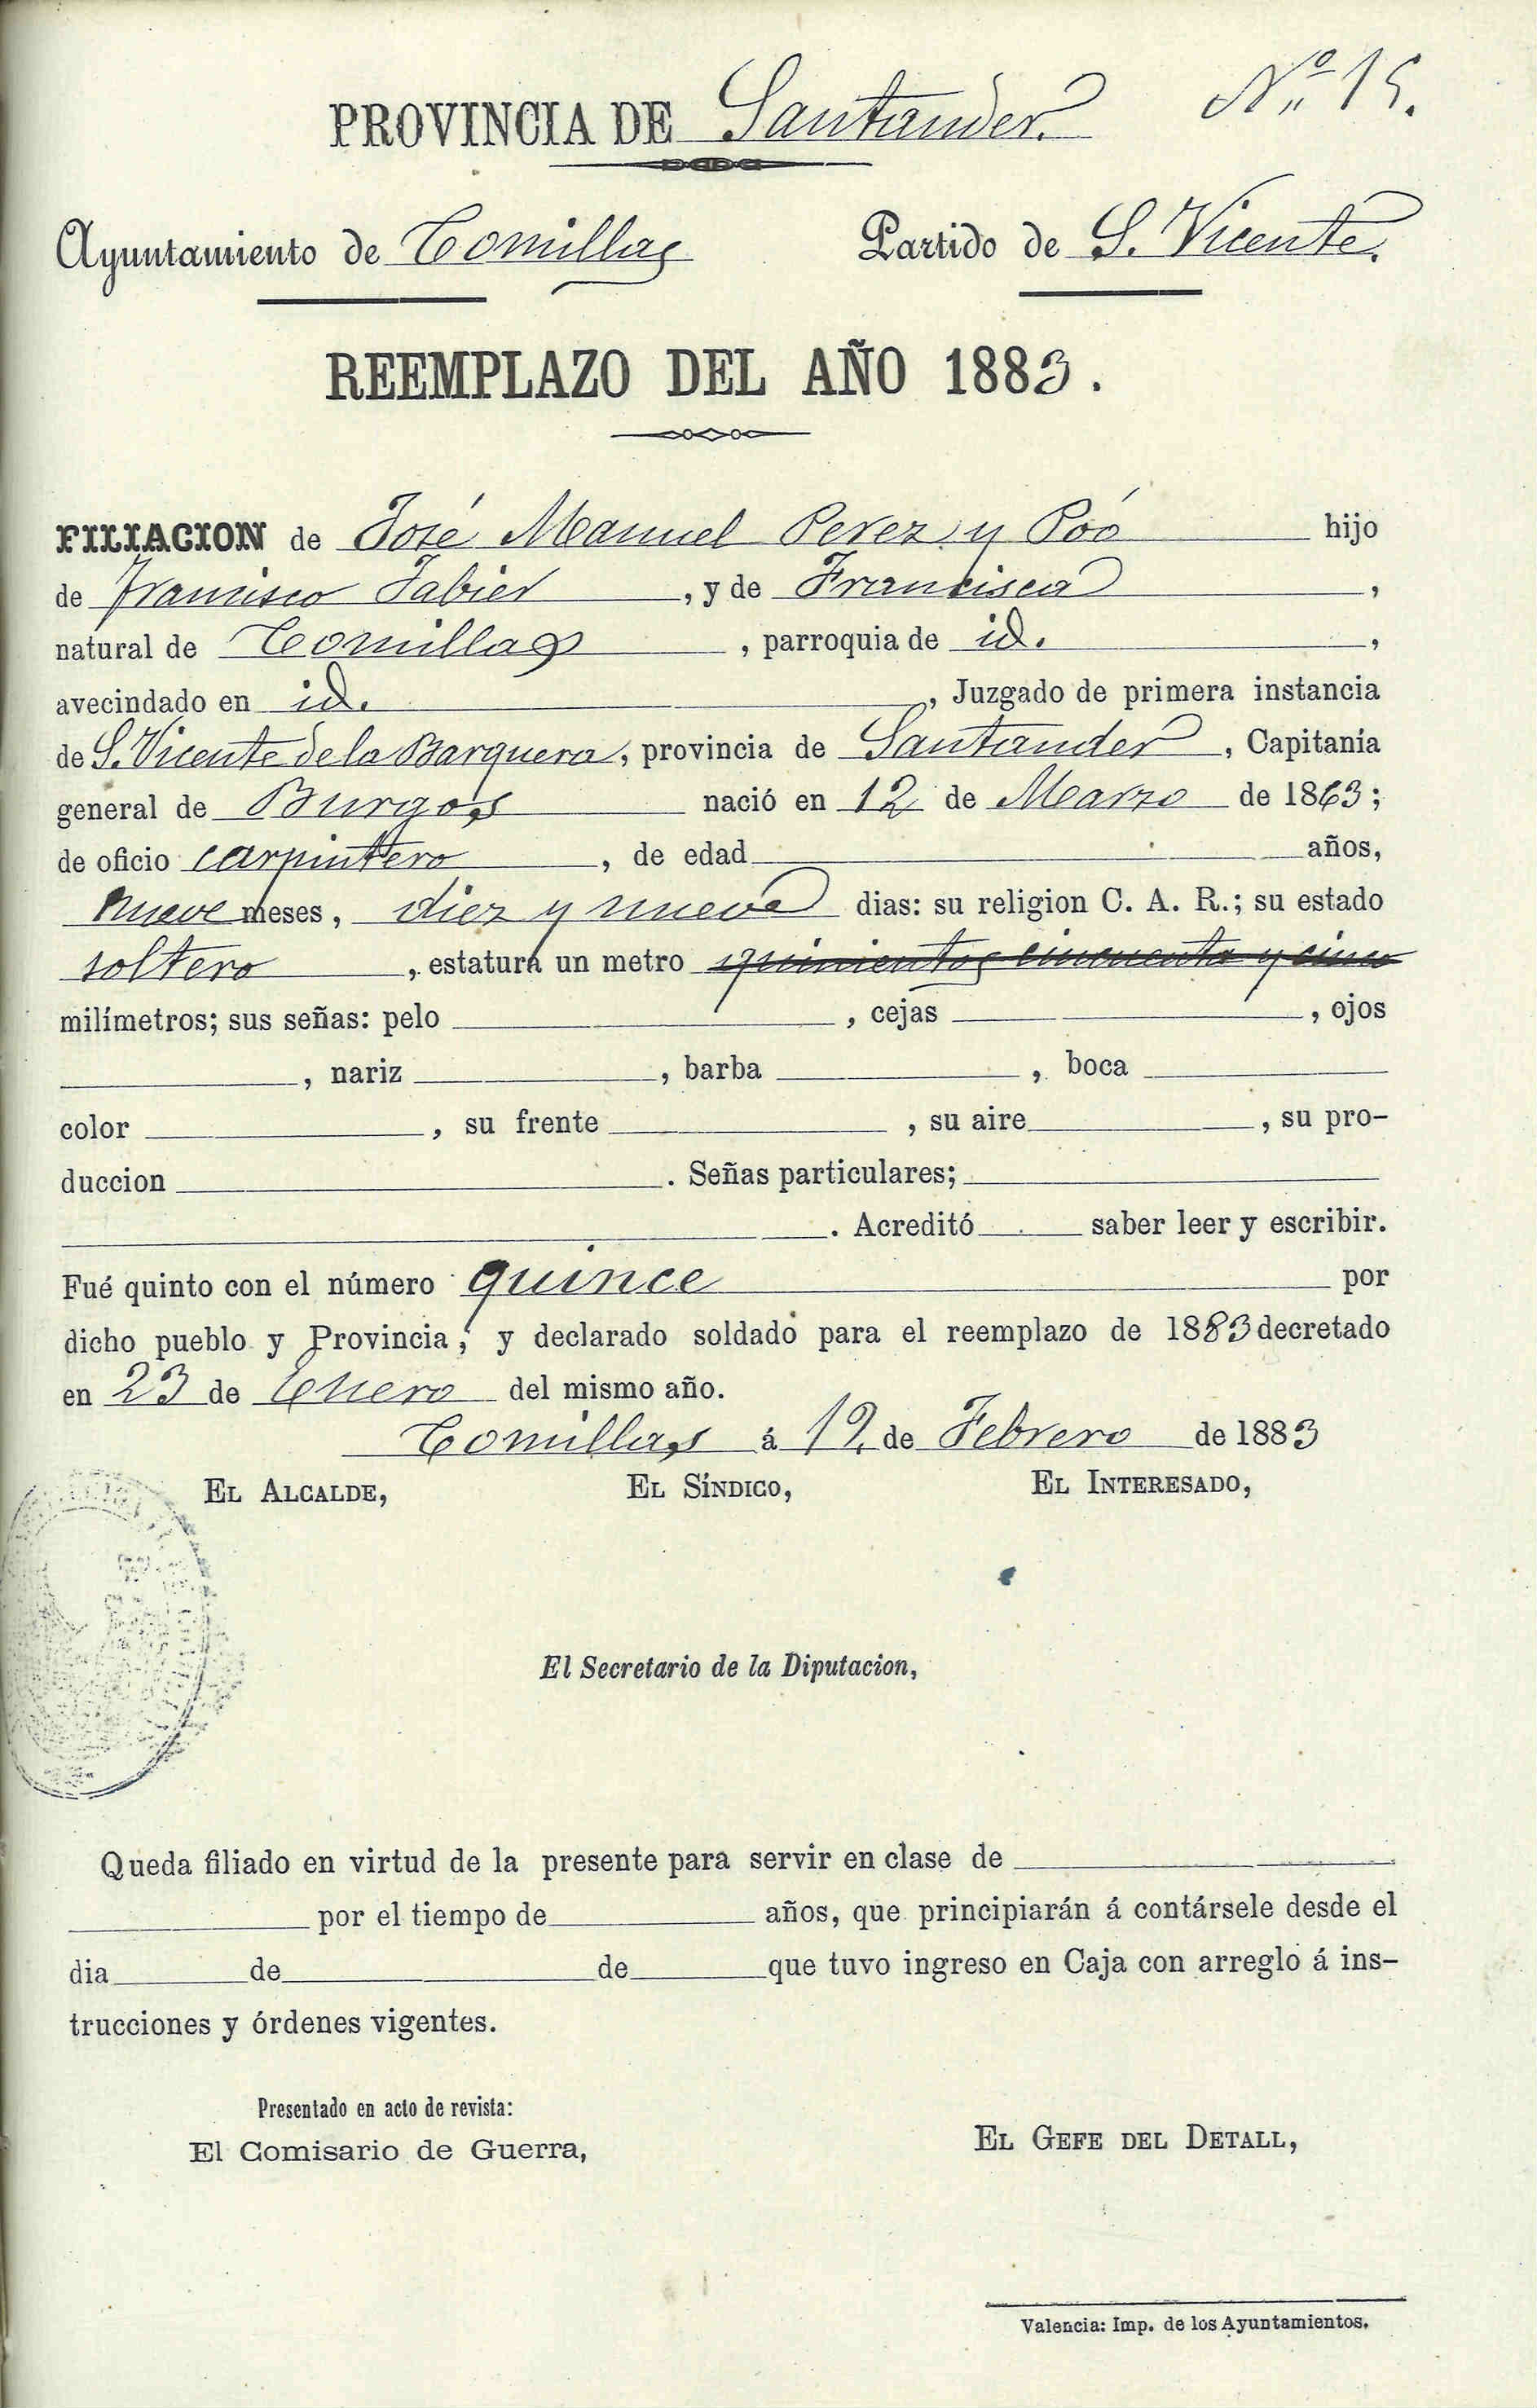 Nº 15.
PROVINCIA DE Santander.
Ayuntamiento de Comillas Partido de S. Vicente.
REEMPLAZO DEL AÑO 1883.
FILIACION de José Manuel Perez y Poó hijo
de Francisco Jabier, y de Francisca,
natural de Comillas, parroquia de id.,
avecindado en id., Juzgado de primera instancia
de S. Vicente de la Barquera, provincia de Santander, Capitanía
general de Burgos nació en 12 de Marzo de 1863;
de oficio carpintero, de edad años,
nueve meses, diez y nueve dias: su religion C. A. R.; su estado
soltero, estatura un metro quinientos cincuenta y cinco
milímetros; sus señas: pelo , cejas , ojos
, nariz , barba , boca
color , su frente , su aire , su pro-
duccion . Señas particulares;
. Acreditó saber leer y escribir.
Fué quinto con el número quince por
dicho pueblo y Provincia, y declarado soldado para el reemplazo de 1883 decretado
en 23 de Enero del mismo año.
Comillas á 12 de Febrero de 1883
EL ALCALDE, EL SÍNDICO, EL INTERESADO,
El Secretario de la Diputacion,
Queda filiado en virtud de la presente para servir en clase de
por el tiempo de años, que principiarán á contársele desde el
dia de de que tuvo ingreso en Caja con arreglo á ins-
trucciones y órdenes vigentes.
Presentado en acto de revista:
El Comisario de Guerra, EL GEFE DEL DETALL,
Valencia: Imp. de los Ayuntamientos.